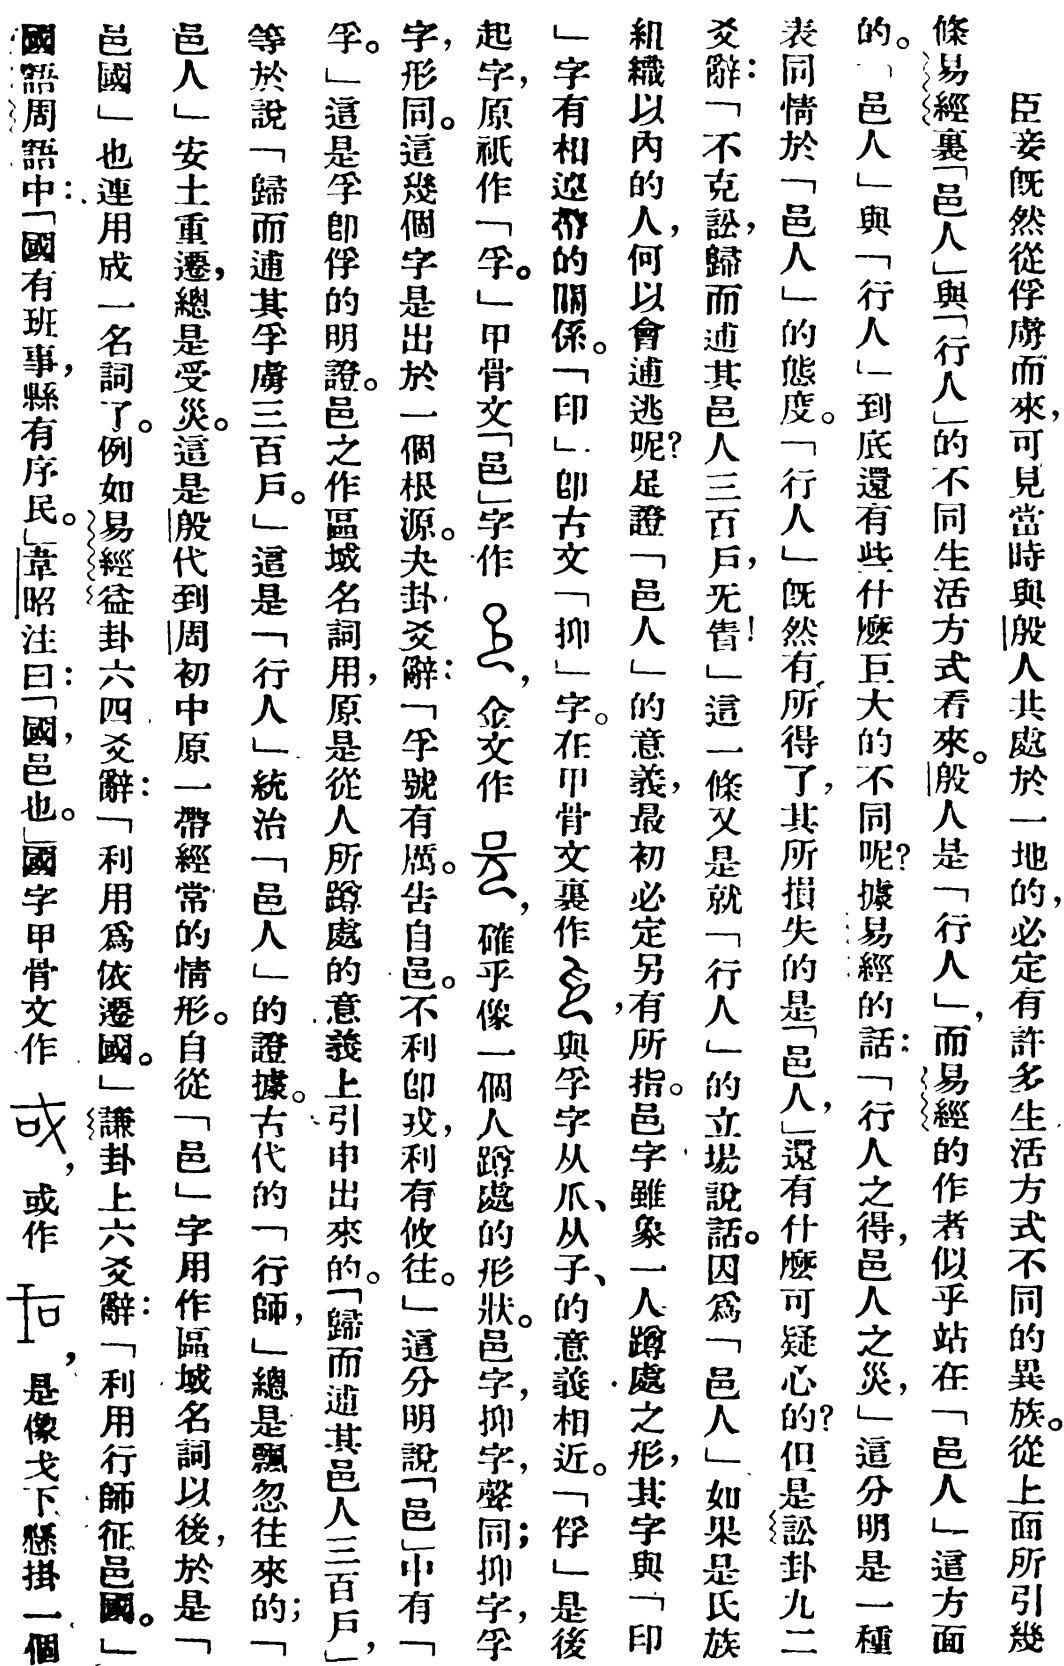 臣妾旣然從俘虜而來，可見當時與殷人共處於一地的，必定有許多生活方式不同的異族。從上面所引幾
條易經裏「邑人」與「行人」的不同生活方式看來。殷人是「行人」，而易經的作者似乎站在「邑人」這方面
的。「邑人」與「行人」到底還有些什麼巨大的不同呢？據易經的話：「行人之得，邑人之災，」這分明是一種
表同情於「邑人」的態度。「行人」旣然有所得了，其所損失的是「邑人，」還有什麼可疑心的？但是訟卦九二
爻辭：「不克訟，歸而逋其邑人三百戶，无眚！」這一條又是就「行人」的立場說話。因爲「邑人」如果是氏族
組織以內的人，何以會逋逃呢？足證「邑人」的意義，最初必定另有所指。邑字雖象一人蹲處之形，其字與「印
」字有相連帶的關係。「印」卽古文「抑」字。在甲骨文裏作，與孚字从爪、从子、的意義相近。「俘」是後
起字，原祇作「孚。」甲骨文「邑」字作，金文作，確乎像一個人蹲處的形狀。邑字，抑字，聲同；抑字，孚
字，形同。這幾個字是出於一個根源。夬卦爻辭：「孚號有厲。告自邑。不利卽戎，利有攸往。」這分明說「邑」中有「
孚。」這是孚卽俘的明證。邑之作區域名詞用，原是從人所蹲處的意義上引申出來的。「歸而逋其邑人三百戶，」
等於說「歸而逋其孚虜三百戶。」這是「行人」統治「邑人」的證據。古代的「行師，」總是飄忽往來的；「
邑人」安土重遷，總是受災。這是殷代到周初中原一帶經常的情形。自從「邑」字用作區域名詞以後，於是「
邑國」也連用成一名詞了。例如易經益卦六四爻辭：「利用爲依遷國。」謙卦上六爻辭：「利用行師征邑國。」
國語周語中：「國有班事，縣有序民。」韋昭注曰：「國，邑也。」國字甲骨文作，或作，是像戈下懸掛一個